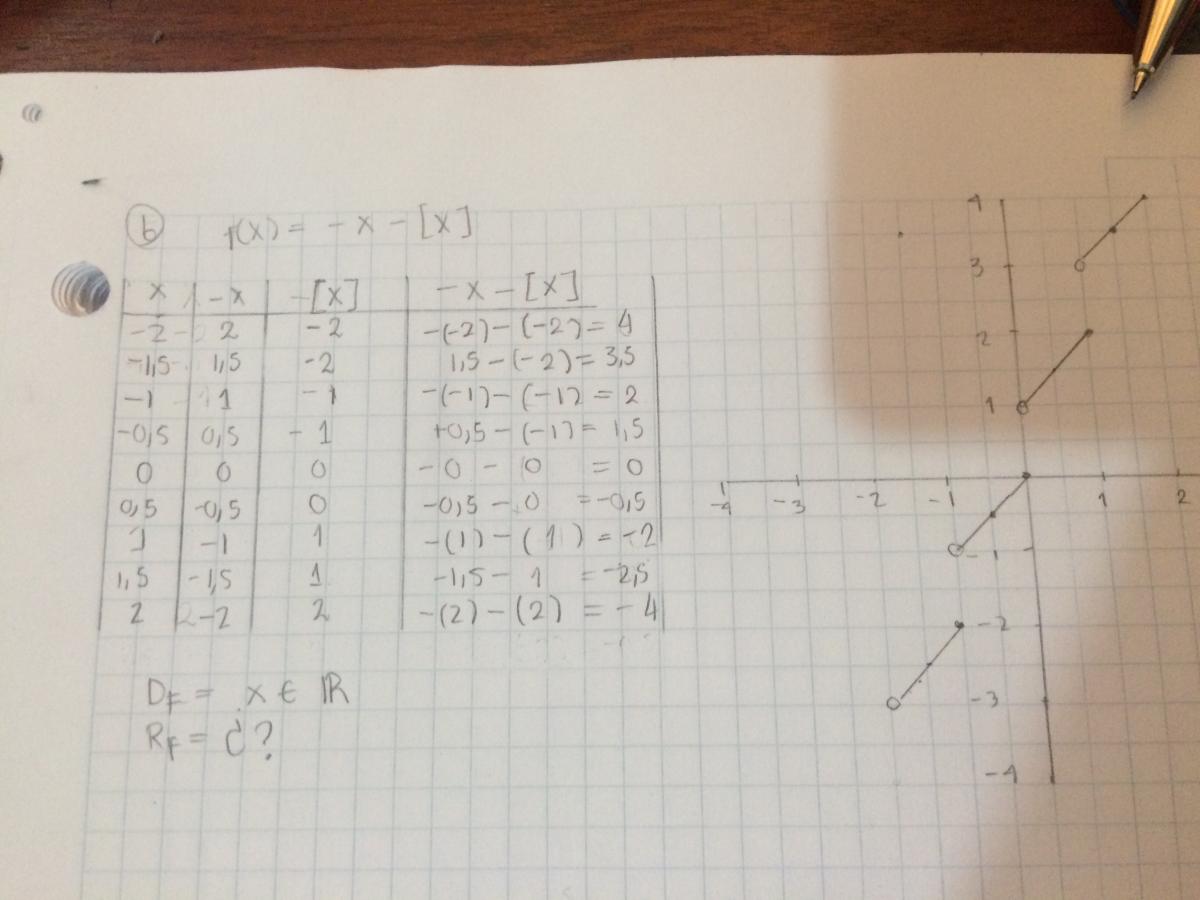 b f(x) = - x - [x]
x -x -[x] -x-[x]
-2 2 -2 -(-2)-(-2)= 4
-1,5 1,5 -2 1,5-(-2)= 3,5
-1 1 -1 -(-1)-(-1) = 2
-0,5 0,5 -1 +0,5-(-1)= 1,5
0 0 0 -0 - 0 = 0
0,5 -0,5 0 -0,5 - 0 = -0,5
1 -1 1 -(1)-(1) = -2
1,5 -1,5 1 -1,5- 1 = -2,5
2 -2 2 -(2)-(2) = -4
DF = x ∈ ℝ
RF = ¿?
4
3
2
1
-4 -3 -2 -1 1 2
-1
-2
-3
-4